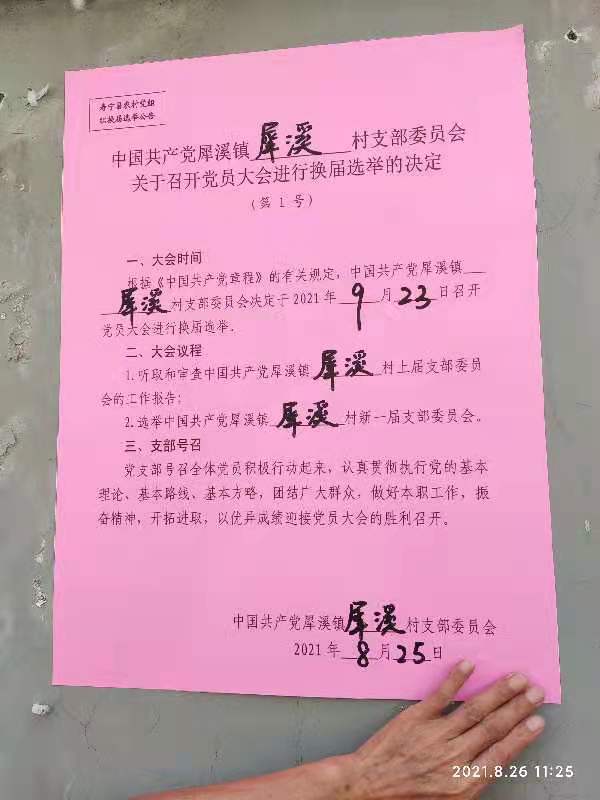 寿宁县农村党组
织换届选举公告
中国共产党犀溪镇犀溪村支部委员会
关于召开党员大会进行换届选举的决定
（第 1 号）
一、大会时间
根据《中国共产党章程》的有关规定，中国共产党犀溪镇
犀溪村支部委员会决定于2021年9月23日召开
党员大会进行换届选举。
二、大会议程
1.听取和审查中国共产党犀溪镇犀溪村上届支部委员
会的工作报告；
2.选举中国共产党犀溪镇犀溪村新一届支部委员会。
三、支部号召
党支部号召全体党员积极行动起来，认真贯彻执行党的基本
理论、基本路线、基本方略，团结广大群众，做好本职工作，振
奋精神，开拓进取，以优异成绩迎接党员大会的胜利召开。
中国共产党犀溪镇犀溪村支部委员会
2021年8月25日
2021.8.26 11:25